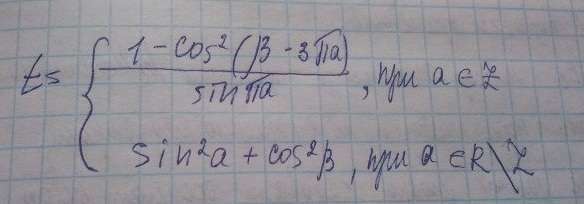 t = { 1 - cos²(β - 3πa) / sin πa , при a ∈ Z
sin²a + cos²β , при a ∈ R\Z